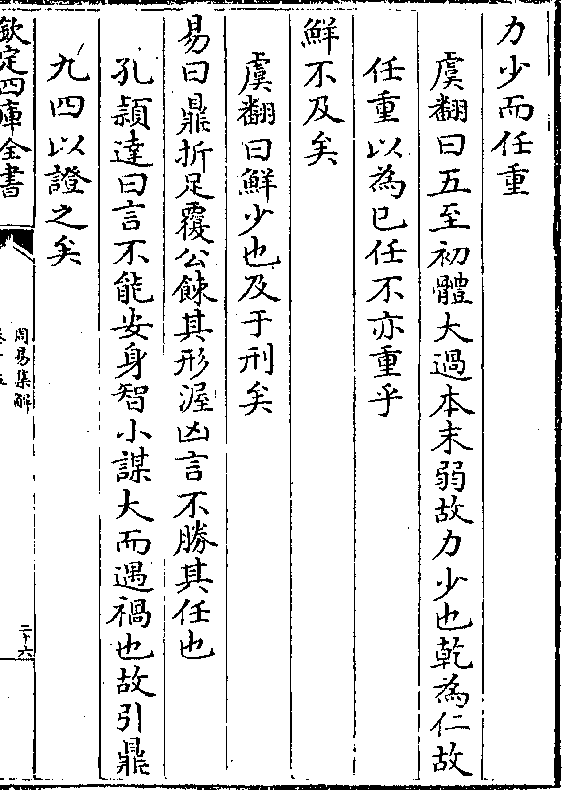 力少而任重
虞翻曰五至初體大過本末弱故力少也乾為仁故
任重以為已任不亦重乎
鮮不及矣
虞翻曰鮮少也及于刑矣
易曰鼎折足覆公餗其形渥凶言不勝其任也
孔頴達曰言不能安身智小謀大而遇禍也故引鼎
九四以證之矣
欽定四庫全書
周易集解
二十六